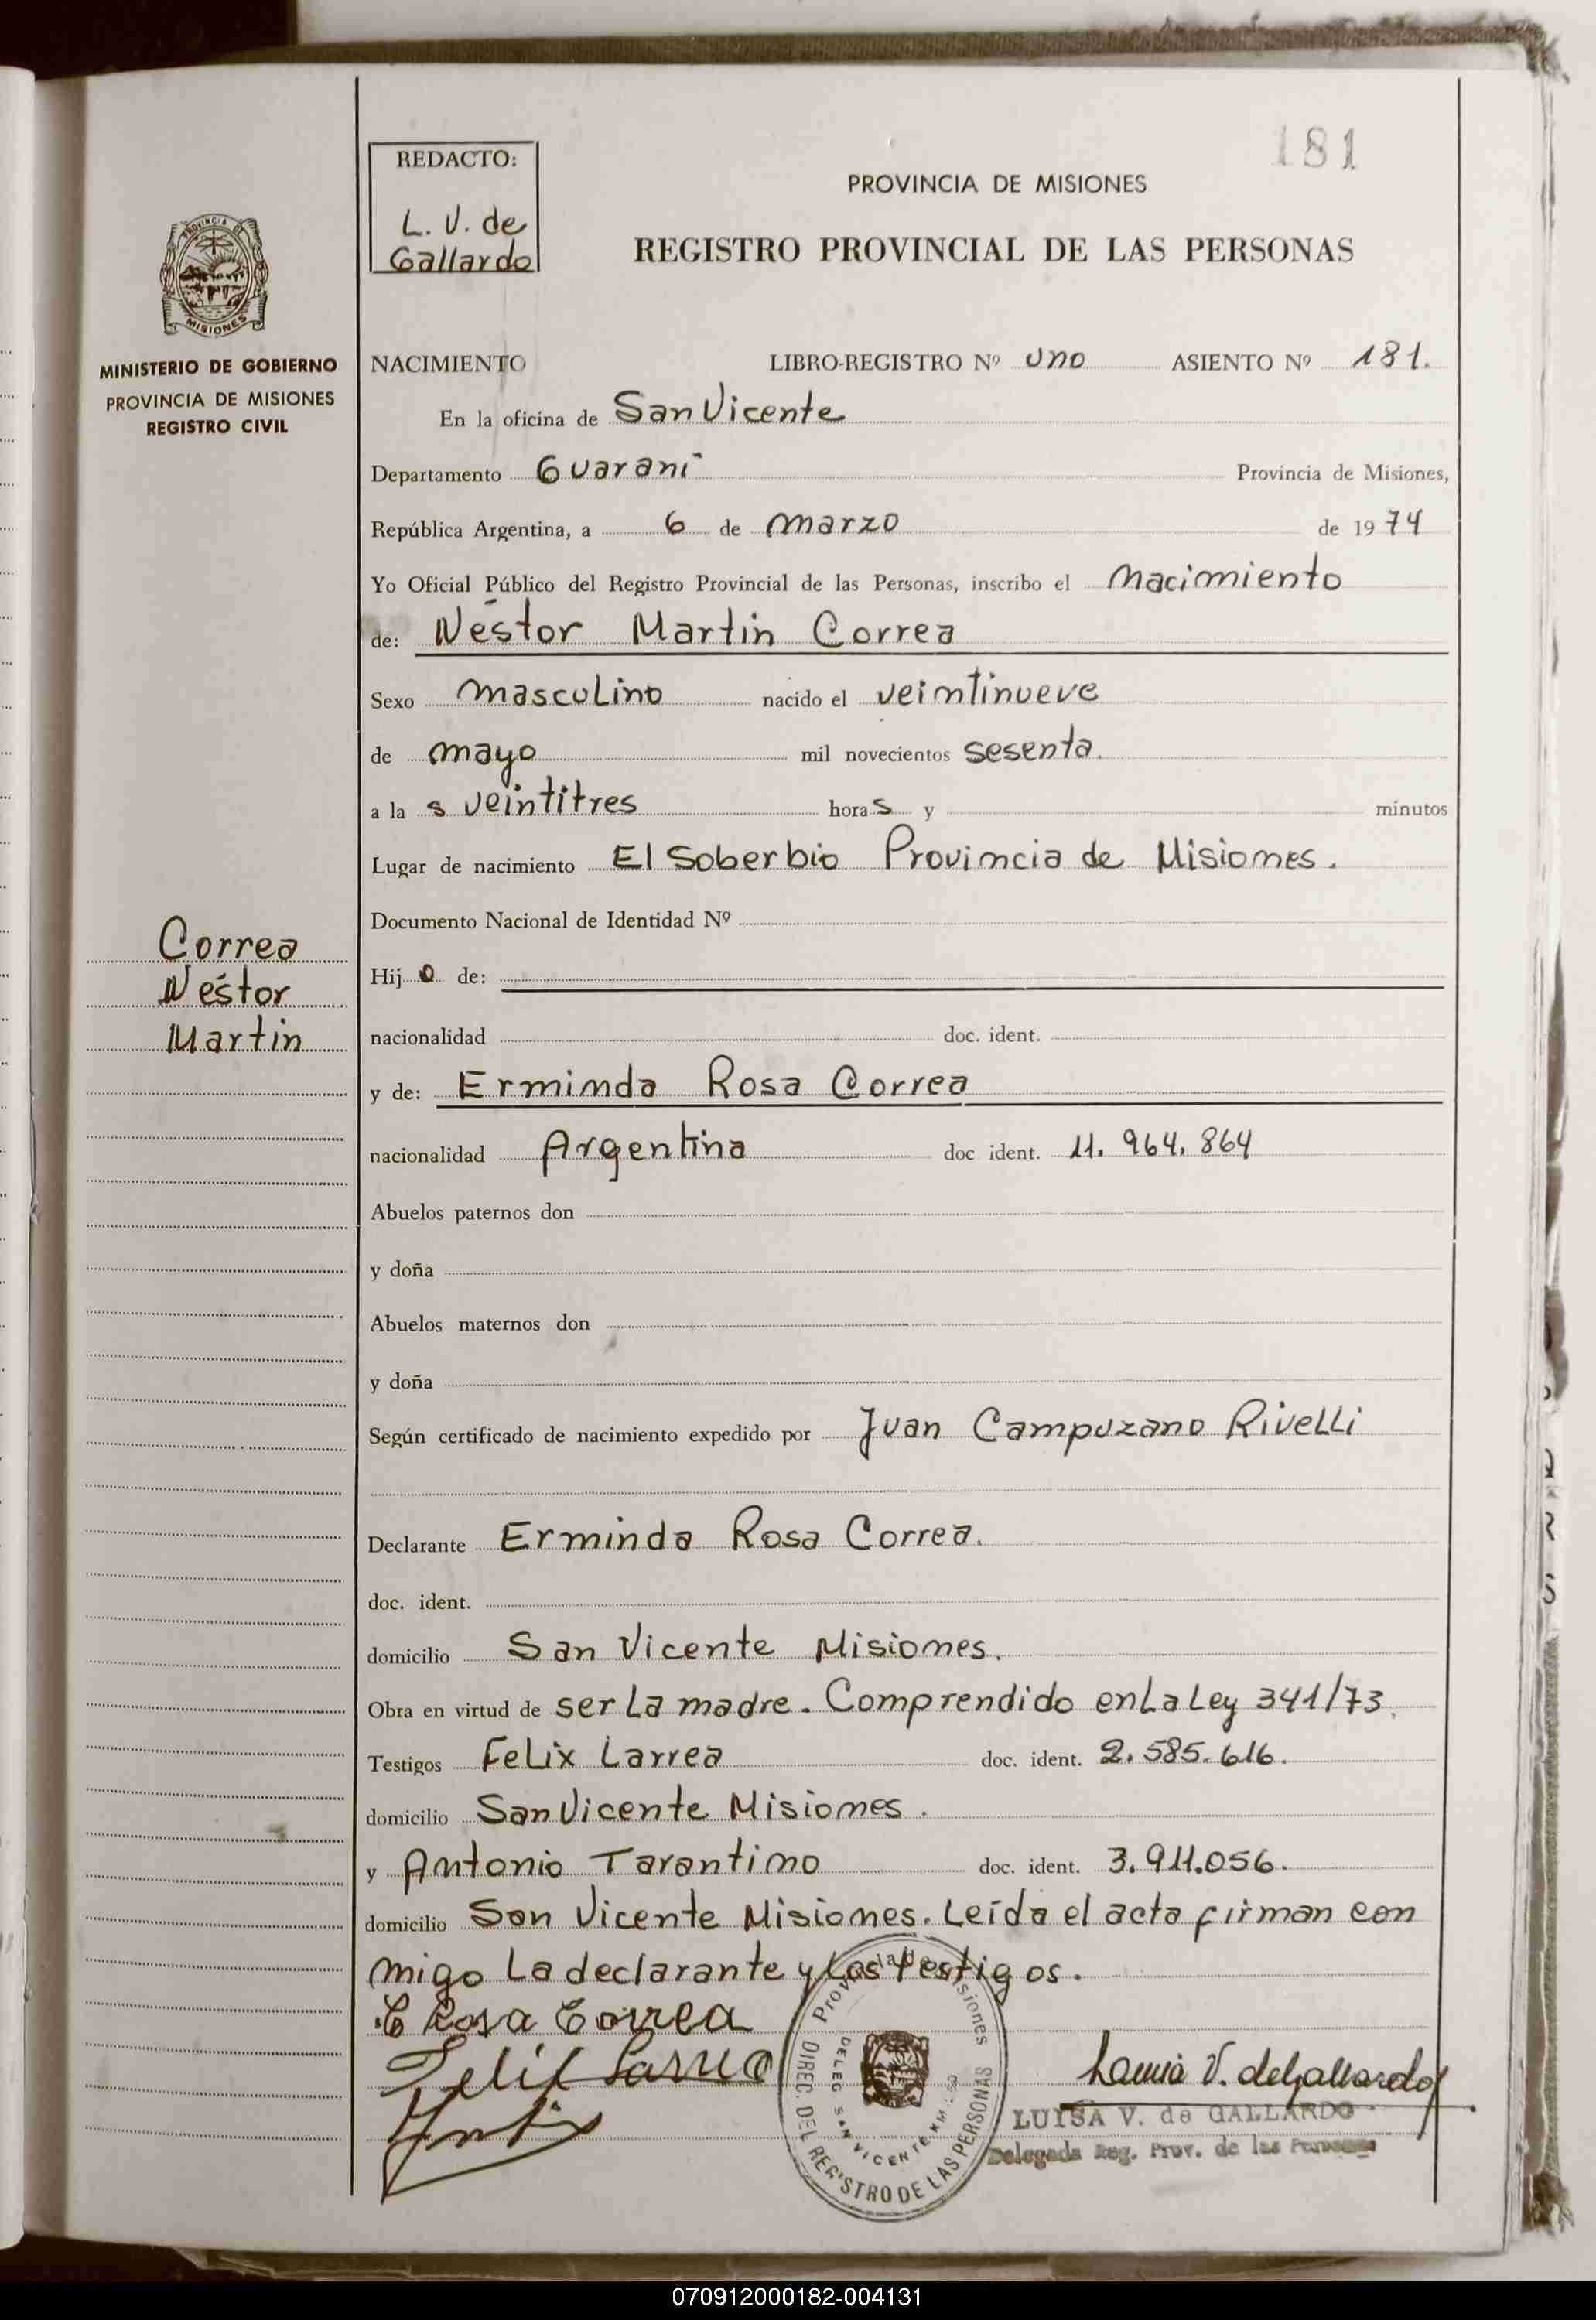 181
REDACTO:
L. V. de
Gallardo
PROVINCIA DE MISIONES
REGISTRO PROVINCIAL DE LAS PERSONAS
PROVINCIA DE
MISIONES
MINISTERIO DE GOBIERNO
PROVINCIA DE MISIONES
REGISTRO CIVIL
NACIMIENTO LIBRO-REGISTRO Nº uno ASIENTO Nº 181.
En la oficina de San Vicente
Departamento Guaraní Provincia de Misiones,
República Argentina, a 6 de marzo de 1974
Yo Oficial Público del Registro Provincial de las Personas, inscribo el Nacimiento
de: Néstor Martin Correa
Sexo masculino nacido el veintinueve
de mayo mil novecientos sesenta.
a la s veintitres hora s y minutos
Lugar de nacimiento El Soberbio Provincia de Misiones.
Documento Nacional de Identidad Nº
Correa
Néstor
Martin
Hij o de:
nacionalidad doc. ident.
y de: Erminda Rosa Correa
nacionalidad Argentina doc ident. 11. 964. 864
Abuelos paternos don
y doña
Abuelos maternos don
y doña
Según certificado de nacimiento expedido por Juan Campuzano Rivelli
Declarante Erminda Rosa Correa.
doc. ident.
domicilio San Vicente Misiones.
Obra en virtud de ser La madre. Comprendido en La Ley 341/73.
Testigos Felix Larrea doc. ident. 2. 585. 616.
domicilio San Vicente Misiones.
y Antonio Tarantino doc. ident. 3. 911.056.
domicilio San Vicente Misiones. Leída el acta firman con
migo La declarante y Los testigos.
E Rosa Correa
Felix Larrea
Provincia de Misiones
DIREC. DEL REGISTRO DE LAS PERSONAS
DELEG SAN VICENTE KM
Luisa V. de Gallardo
LUISA V. de GALLARDO
Delegada Reg. Prov. de las Personas
070912000182-004131